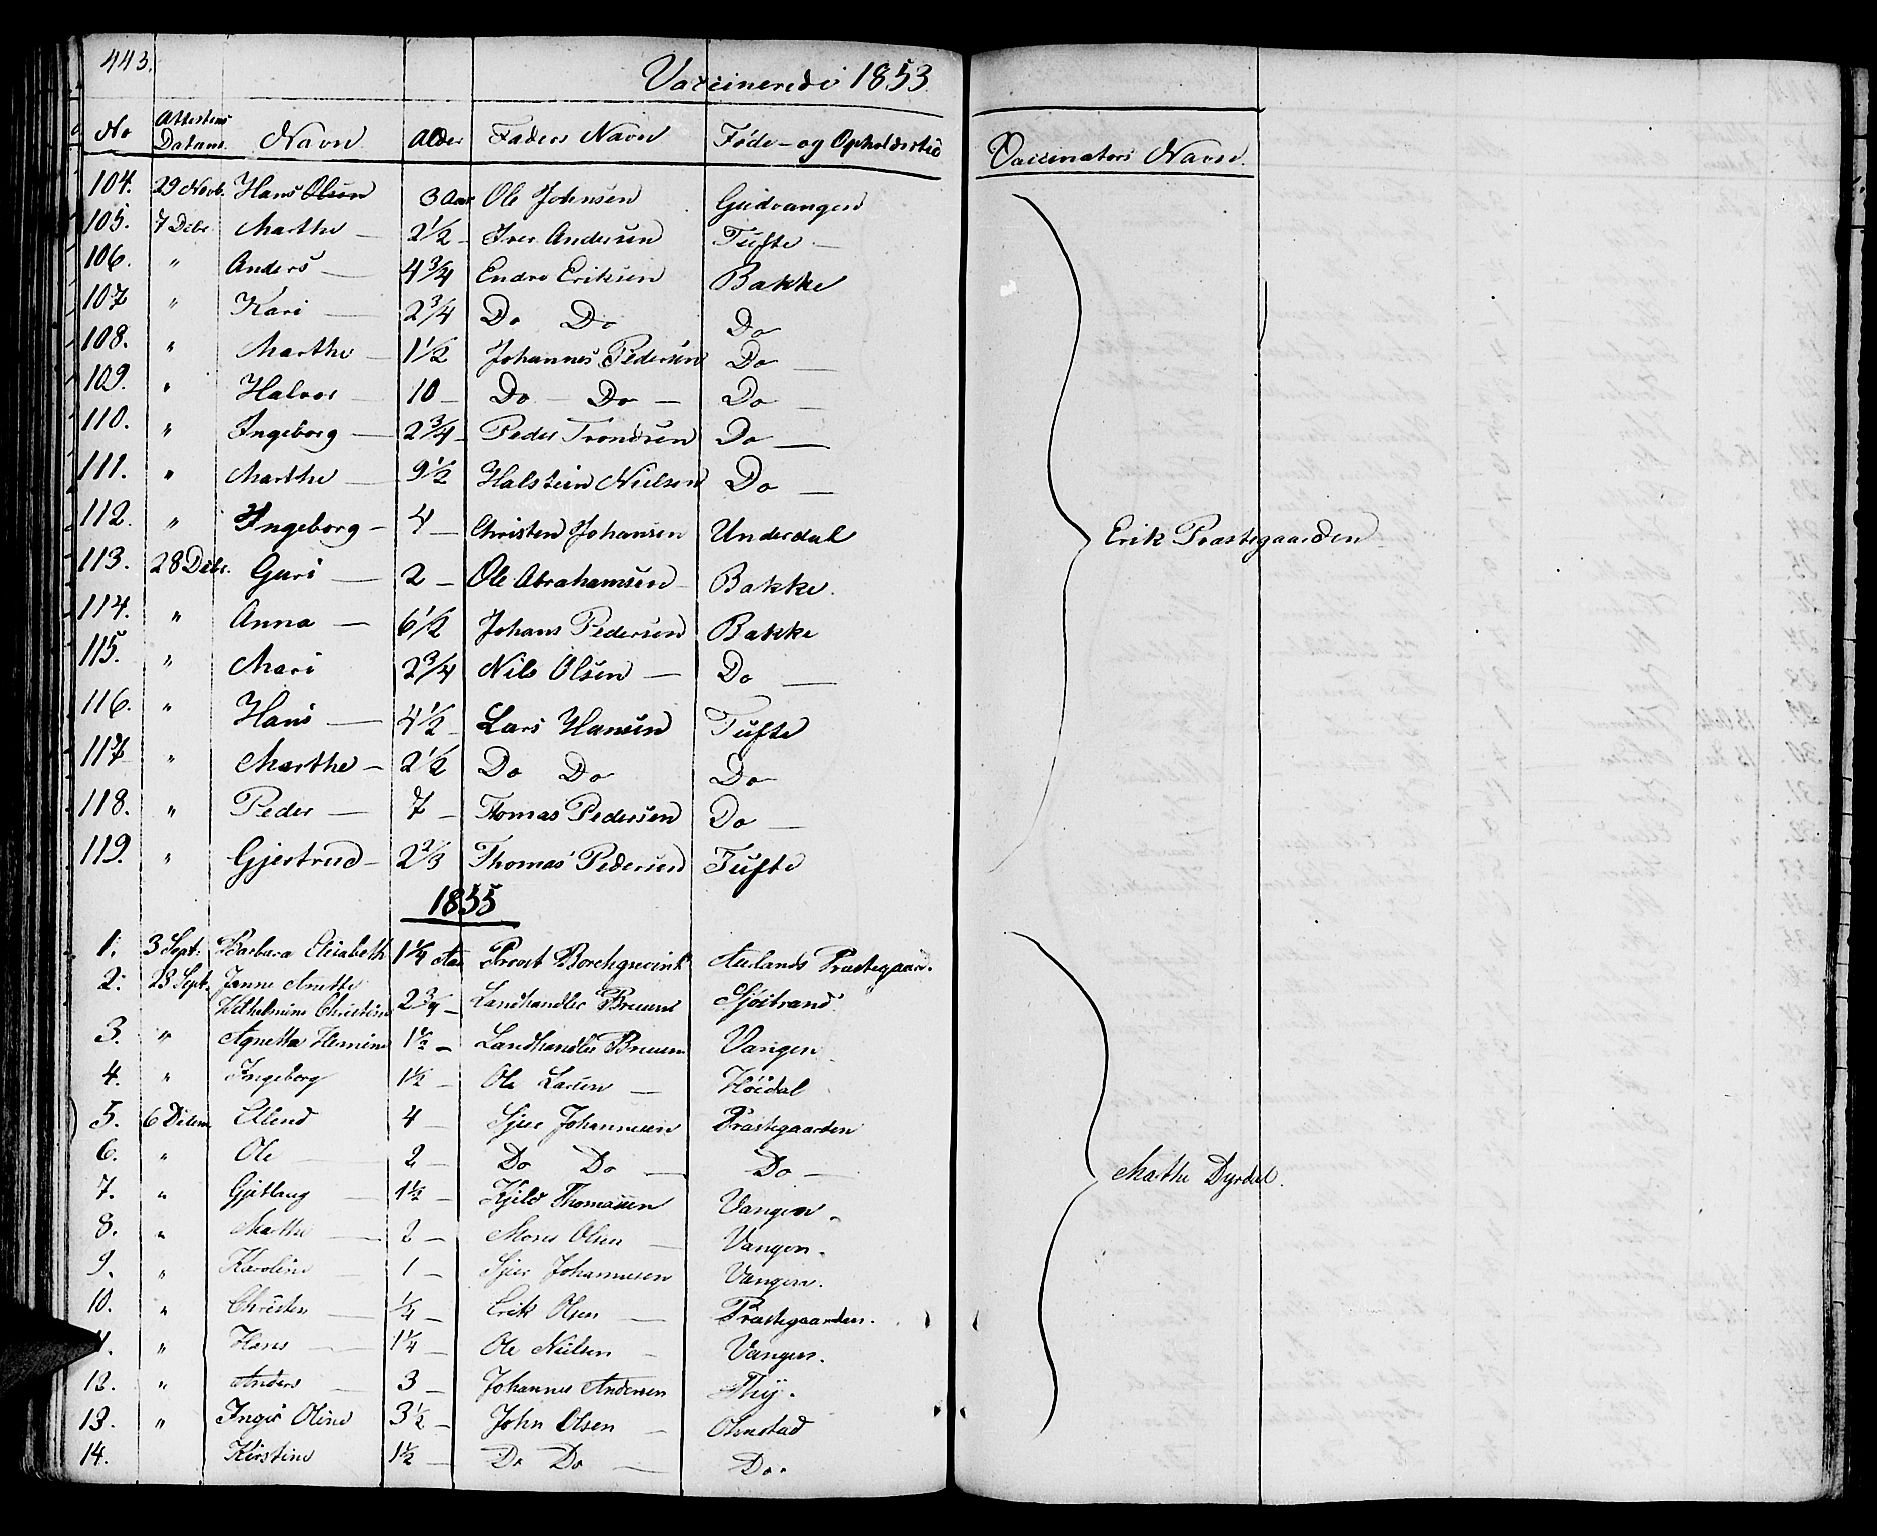 443.
Vaccinerede 1853.
No Attestens Datum. Navn Alder Faders Navn Føde- og Opholdssted Vaccinators Navn.
104. 29 Novb. Hans Olsen 3 Aar Ole Johnsen Gudvangen
105. 7 Debr. Marthe — 2 1/2 — Iver Andersen Tufte —
106. " Anders — 4 3/4 Endre Eriksen Bakke
107 " Kari — 2 3/4 Do Do Do
108. " Marthe — 1 1/2 Johannes Pedersen Do —
109. " Halvor — 10 — Do — Do — Do —
110. " Ingeborg — 2 3/4 — Peder Trondsen Do —
111. " Marthe — 9 1/2 Halstein Nielsen Do —
112. " Ingeborg — 4 — Christen Johansen Underdal
Erik Præstegaarden
113. 28 Debr. Guri — 2 — Ole Abrahamsen Bakke.
114. " Anna — 6 1/2 Johans Pedersen Bakke
115. " Mari 2 3/4 Nils Olsen — Do —
116. " Hans — 4 1/2 — Lars Hansen Tufte
117 " Marthe — 2 1/2 Do Do Do
118. " Peder — 7 — Thomas Pedersen Do —
119. " Gjertrud — 2 2/3 Thomas Pedersen Tufte
1855
1. 3 Sept. Barbara Elisabeth 1 1/4 Aar Provst Borchgrevink Aurlands Præstegaard.
2. 23 Sept. Janne Anette
Wilhelmine Christine 2 3/4 — Landhandler Bruun Sjøstrand
3. " Agnetta Hermine 1 1/2 — Landhandler Bruun Vangen
4. " Ingeborg 1 1/2 — Ole Larsen — Høidal
5. 6 Decem. Elend 4 — Sjur Johannesen Præstegaarden
6. " Ole — 2 — Do Do — Do —
Marthe Dyrdal.
7. " Gjetlaug — 1 1/2 — Kjeld Thomassen Vangen —
8. " Marthe — 2 — Mons Olsen — Vangen.
9. " Karoline — 1 — Sjur Johannesen Vangen.
10. " Christen — 1/4 — Erik Olsen — Præstegaarden.
11. " Hans — 1 1/4 — Ole Nielsen — Vangen.
12. " Anders — 3 — Johannes Andersen Thy.
13. " Inger Oline 3 1/2 — John Olsen — Ohnstad
14. Kirstine 1 1/2 — Do Do — Do.